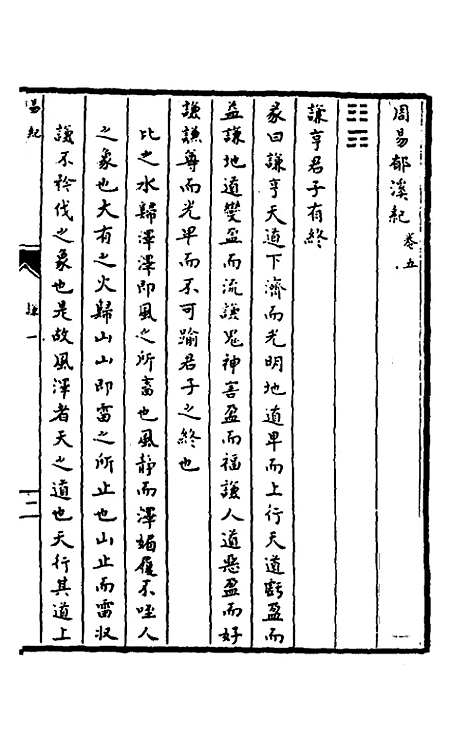 周易郁溪紀 卷五
謙亨君子有終
彖曰謙亨天道下濟而光明地道卑而上行天道虧盈而
益謙地道變盈而流謙鬼神害盈而福謙人道惡盈而好
謙謙尊而光卑而不可踰君子之終也
比之水歸澤澤即風之所畜也風静而澤竭履不咥人
之象也大有之火歸山山即雷之所止也山止而雷収
謙不矜伐之象也是故風澤者天之道也天行其道上
易紀
謙一
一